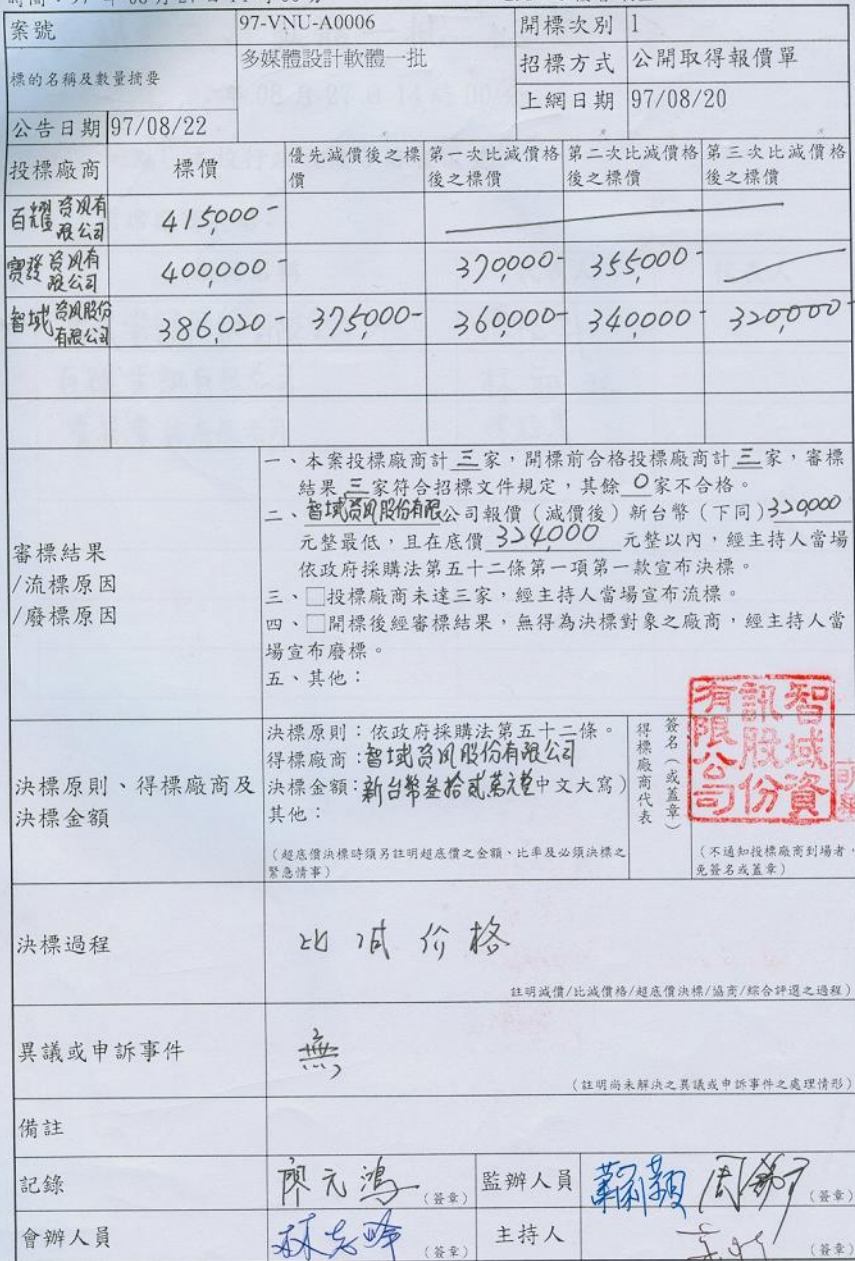 案號 97-VNU-A0006 開標次別 1
標的名稱及數量摘要 多媒體設計軟體一批 招標方式 公開取得報價單
上網日期 97/08/20
公告日期 97/08/22
投標廠商 標價 優先減價後之標價 第一次比減價格後之標價 第二次比減價格後之標價 第三次比減價格後之標價
百耀資訊有限公司 415,000-
寶發資訊有限公司 400,000- 370,000- 355,000-
智域資訊股份有限公司 386,020- 375,000- 360,000- 340,000- 320,000-
審標結果
/流標原因
/廢標原因
一、本案投標廠商計三家,開標前合格投標廠商計三家,審標
結果三家符合招標文件規定,其餘0家不合格。
二、智域資訊股份有限公司報價(減價後)新台幣(下同)320,000
元整最低,且在底價324,000元整以內,經主持人當場
依政府採購法第五十二條第一項第一款宣布決標。
三、□投標廠商未達三家,經主持人當場宣布流標。
四、□開標後經審標結果,無得為決標對象之廠商,經主持人當
場宣布廢標。
五、其他:
決標原則、得標廠商及
決標金額
決標原則:依政府採購法第五十二條。
得標廠商:智域資訊股份有限公司
決標金額:新台幣叁拾貳萬元整中文大寫)
其他:
(超底價決標時須另註明超底價之金額、比率及必須決標之
緊急情事)
得標廠商代表
簽名(或蓋章)
智域資訊股份有限公司
(不通知投標廠商到場者,
免簽名或蓋章)
決標過程 比减价格
註明減價/比減價格/超底價決標/協商/綜合評選之過程)
異議或申訴事件 無
(註明尚未解決之異議或申訴事件之處理情形)
備註
記錄 廖元鴻 (簽章) 監辦人員 (簽章)
會辦人員 林志峰 (簽章) 主持人 (簽章)